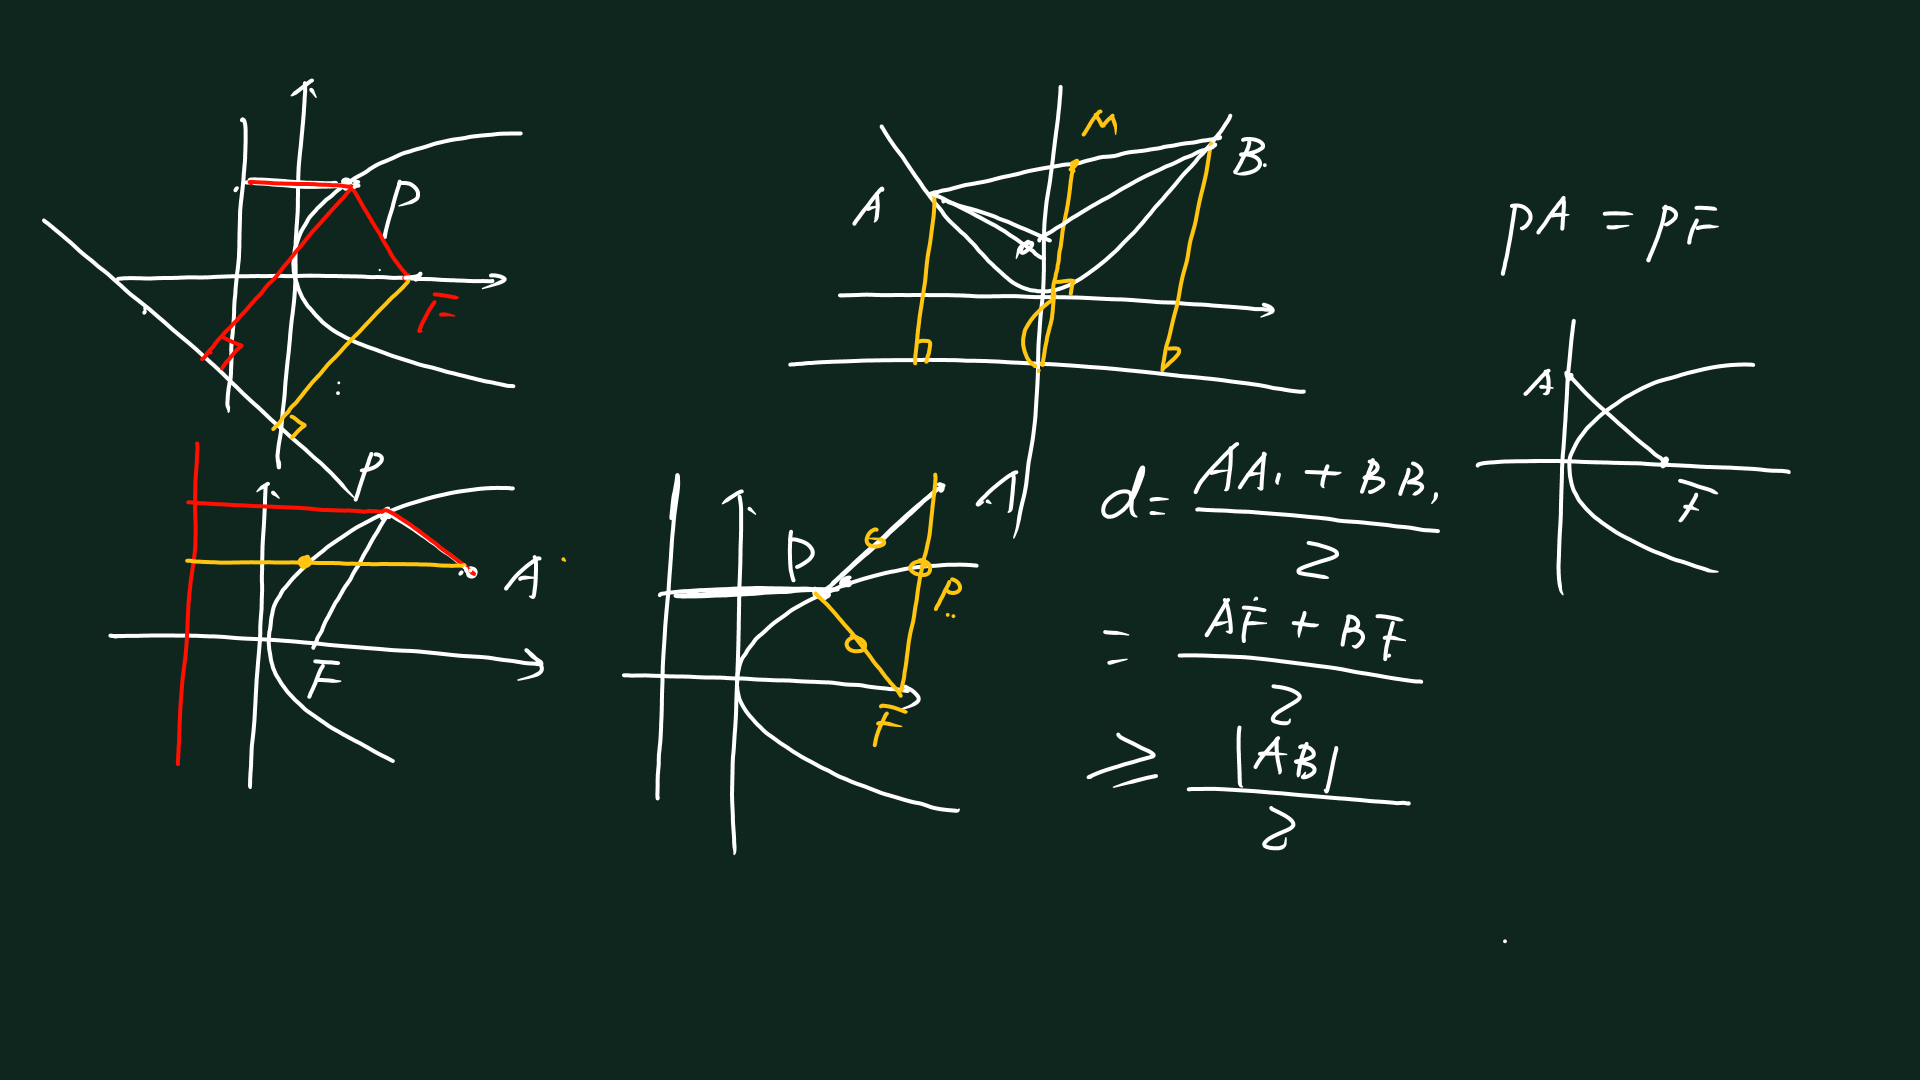 P
F
M
B
A
PA = PF
A
F
P
A
F
A
P
F
d = \frac{AA_1 + BB_1}{2}
= \frac{AF + BF}{2}
≥ \frac{|AB|}{2}